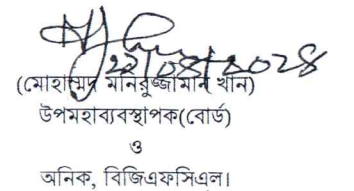 ২২/০৪/২০২৪
(মোহাম্মদ মনিরুজ্জামান খান)
উপমহাব্যবস্থাপক(বোর্ড)
ও
অনিক, বিজিএফসিএল।